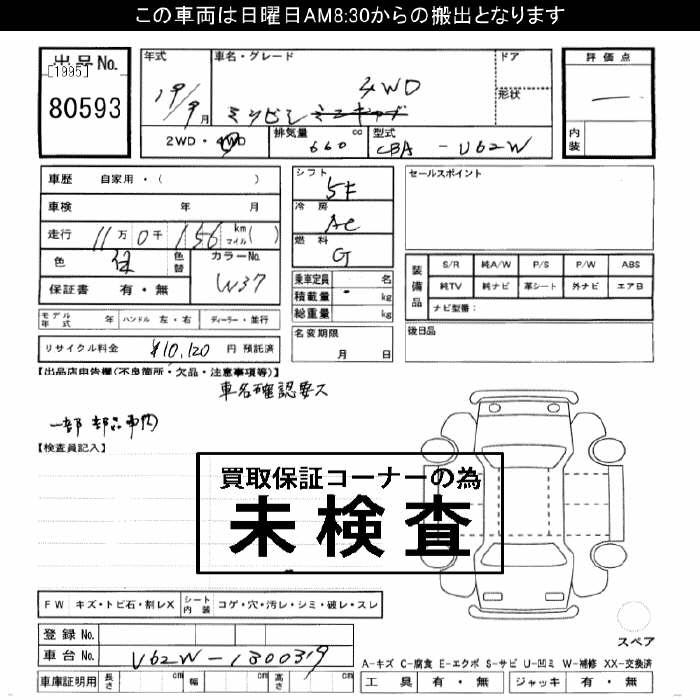 この車両は日曜日AM8:30からの搬出となります
出品No.
[1995]
80593
年式 車名・グレード ドア 評価点
19/9月 ミツビシ ミニキャブ 4WD 形状 ―
2WD・4WD 排気量 660 cc 型式 CBA - U62W 内装
車歴 自家用・( ) シフト 5F セールスポイント
車検 年 月 冷房 AC
走行 11万0千156 km マイル( ) 燃料 G
色 白 色替 カラーNo. W37
保証書 有・無
乗車定員 名
積載量 - kg
総重量 kg
装備品 S/R 純A/W P/S P/W ABS
純TV 純ナビ 革シート 外ナビ エアB
ナビ型番:
モデル年式 年 ハンドル 左・右 ディーラー・並行 名変期限 月 日 後日品
リサイクル料金 ¥10,120 円 預託済
【出品店申告欄(不良箇所・欠品・注意事項等)】
車名確認要ス
一部 部品車内
【検査員記入】
買取保証コーナーの為
未検査
FW キズ・トビ石・割レX シート内装 コゲ・穴・汚レ・シミ・破レ・スレ
登録No.
スペア
車台No. U62W-1300319
A-キズ C-腐食 E-エクボ S-サビ U-凹ミ W-補修 XX-交換済
車庫証明用 長さ cm 幅 cm 高さ cm 工具 有・無 ジャッキ 有・無